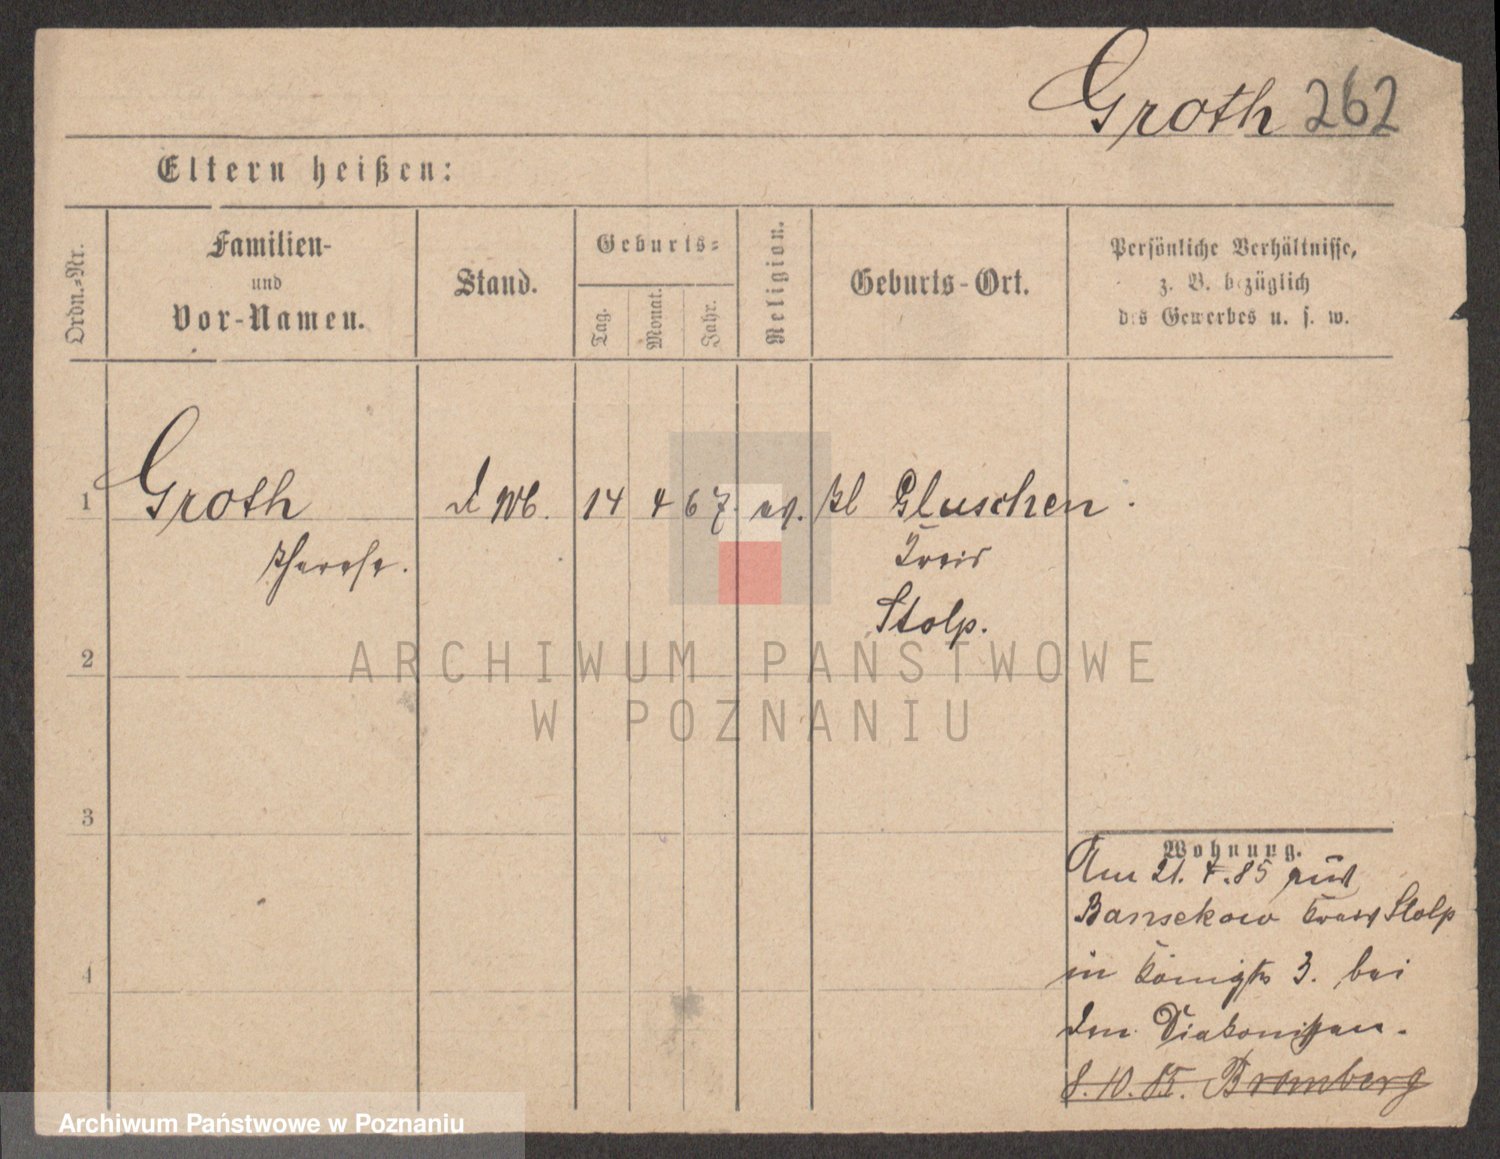 Groth 262
Eltern heißen:
Ordn.-Nr.
Familien-
und
Vor-Namen.
Stand.
Geburts-
Tag.
Monat.
Jahr.
Religion.
Geburts-Ort.
Persönliche Verhältnisse,
z. B. bezüglich
des Gewerbes u. s. w.
1 Groth 14 4 67. ev. Kl Gluschen.
Therese. Kreis
Stolp.
2
3
4
Wohnung.
Am 21. 4. 85 aus
Bansekow Kreis Stolp
in Königstr 3. bei
den Diakonissen.
8.10.85. Bromberg
ARCHIWUM PAŃSTWOWE
W POZNANIU
Archiwum Państwowe w Poznaniu